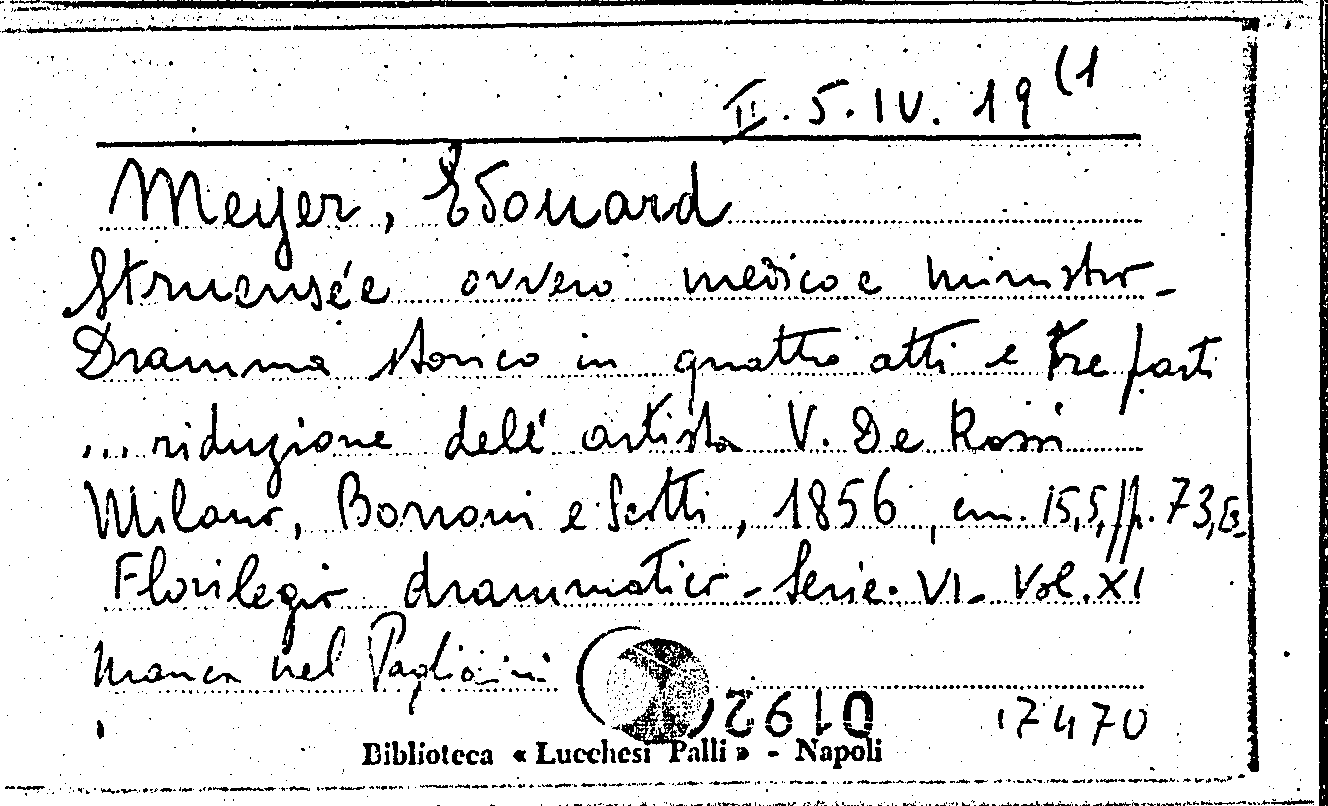 II. 5. IV. 19 (1
Meyer, Edouard
Struensée ovvero medico e ministro -
Dramma storico in quattro atti e tre parti
... riduzione dell' artista V. De Rossi
Milano, Borroni e Scotti, 1856, cm. 15,5, pp. 73,
Florilegio drammatico - Serie. VI - Vol. XI
manca nel Pagliaini
0192
17470
Biblioteca « Lucchesi Palli » - Napoli